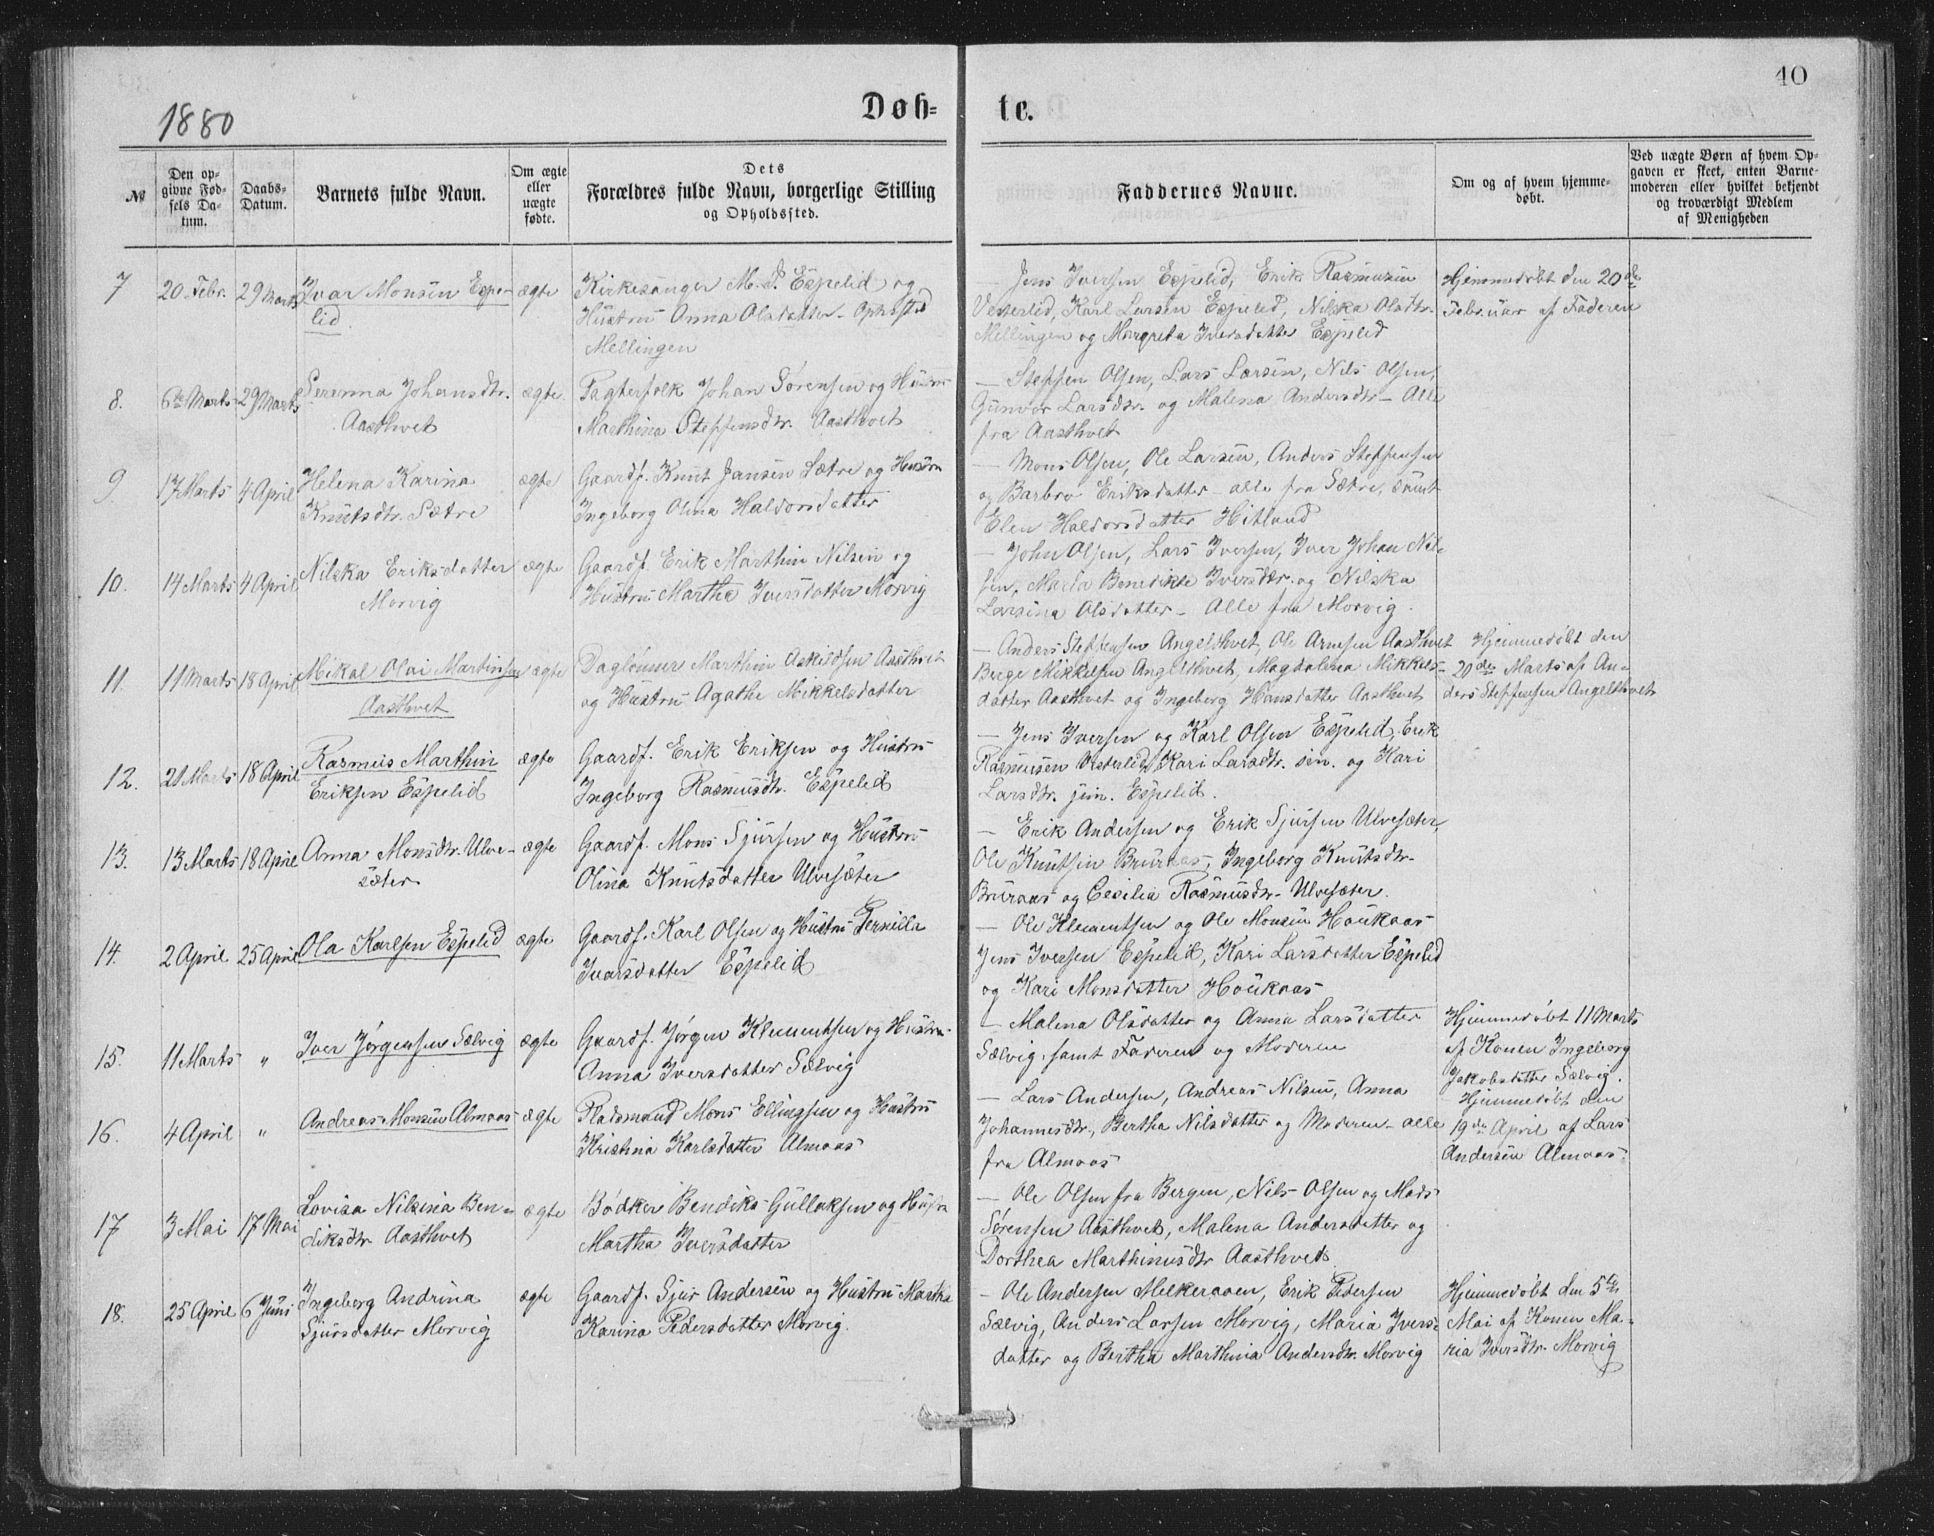 40
1880
Døb-
te.
№
Den op-
givne Fød-
sels Da-
tum.
Daabs-
Datum.
Barnets fulde Navn.
Om ægte
eller
uægte
fødte.
Dets
Forældres fulde Navn, borgerlige Stilling
og Opholdssted.
Faddernes Navne.
Om og af hvem hjemme-
døbt.
Ved uægte Børn af hvem Op-
gaven er skeet, enten Barne-
moderen eller hvilket bekjendt
og troværdigt Medlem
af Menigheden
7
20. Febr.
29 Marts
Ivar Monsen Espe-
lid.
ægte
Kirkesanger M. J. Espelid og
Hustru Anna Olsdatter - Opholdssted
Mellingen
— Jens Iversen Espelid, Erik Rasmusen
Vesterlid, Karl Larsen Espelid, Nilska Olsdtr.
Mellingen og Margreta Iversdatter Espelid
Hjemmedøbt den 20de
Februar af Faderen
8.
6te Marts
29 Marts
Serenna Johansdtr.
Aasthvet
ægte
Pagterfolk Johan Sørensen og Hustru
Marthina Steffensdtr. Aasthvet
— Steffen Olsen, Lars Larsen, Nils Olsen,
Gunvor Larsdtr. og Malena Andersdtr - Alle
fra Aasthvet
9.
17 Marts
4 April
Helena Karina
Knutsdtr. Sætre
ægte
Gaardf. Knut Jansen Sætre og Hustru
Ingeborg Olina Haldorsdatter
— Mons Olsen, Ole Larsen, Anders Steffensen
og Barbro Eriksdatter - alle fra Sætre, samt
Elen Haldorsdatter Hitland
10.
14 Marts
4 April
Nilska Eriksdatter
Morvig
ægte
Gaardf. Erik Marthin Nilsen og
Hustru Martha Iversdatter Morvig
— John Olsen, Lars Iversen, Iver Johan Nil-
sen, Maria Benedikte Iversdtr. og Nilska
Larsina Olsdatter - Alle fra Morvig.
11.
11 Marts
18 April
Mikal Olai Martinsen
Aasthvet
ægte
Daglønner Marthin Askildsen Aasthvet
og Hustru Agathe Mikkelsdatter
— Anders Steffensen Angelthvet, Ole Arnesen Aasthvet
Berge Mikkelsen Angelthvet, Magdalena Mikkels-
datter Aasthvet og Ingeborg Hansdatter Aasthvet
Hjemmedøbt den
20de Marts af An-
ders Steffensen Angelthvet
12.
21 Marts
18 April
Rasmus Marthin
Eriksen Espelid
ægte
Gaardf. Erik Eriksen og Hustru
Ingeborg Rasmusdtr. Espelid
— Jens Iversen og Karl Olsen Espelid, Erik
Rasmusen Vesterlid, Kari Larsdtr. sen. og Kari
Larsdtr. jun. Espelid.
13.
13 Marts
18 April
Anna Monsdtr. Ulve-
sæter
ægte
Gaardf. Mons Sjursen og Hustru
Olina Knutsdatter Ulvesæter
— Erik Andersen og Erik Sjursen Ulvesæter,
Ole Knutsen Bruraas, Ingeborg Knutsdtr.
Bruraas og Cecilia Rasmusdtr. Ulvesæter.
14.
2 April
25 April
Ola Karlsen Espelid
ægte
Gaardf. Karl Olsen og Hustru Pernilla
Ivarsdatter Espelid
— Ole Klementsen og Ole Monsen Houkaas
Jens Iversen Espelid, Kari Larsdatter Espelid
og Kari Monsdatter Houkaas
15.
11 Marts
"
Iver Jørgensen Sælvig
ægte
Gaardf. Jørgen Klementsen og Hustru
Anna Iversdatter Sælvig
— Malena Olsdatter og Anna Larsdatter
Sælvig, samt Faderen og Moderen
Hjemmedøbt 11 Marts
af Konen Ingeborg
Jakobsdatter Sælvig.
16.
4 April
"
Andreas Monsen Almaas
ægte
Pladsmand Mons Ellingsen og Hustru
Kristina Karlsdatter Almaas
— Lars Andersen, Andreas Nilsen, Anna
Johannesdtr., Bertha Nilsdatter og Moderen - alle
fra Almaas
Hjemmedøbt den
19de April af Lars
Andersen Almaas.
17
3 Mai
17 Mai
Lovisa Nilsina Ben-
diksdtr. Aasthvet
ægte
Bødker Bendiks Gullaksen og Hustru
Martha Iversdatter
— Ole Olsen fra Bergen, Nils Olsen og Mads
Sørensen Aasthvet, Malena Andersdatter og
Dorthea Marthinusdtr Aasthvet
18.
25 April
6 Juni
Ingeborg Andrina
Sjursdatter Morvig
ægte
Gaardf. Sjur Andersen og Hustru Martha
Karina Pedersdatter Morvig.
— Ole Andersen Melkeraaen, Erik Pedersen
Sælvig, Anders Larsen Morvig, Maria Ivers-
datter og Bertha Marthina Andersdtr. Morvig
Hjemmedøbt den 5te
Mai af Konen Ma-
ria Iversdtr. Morvig